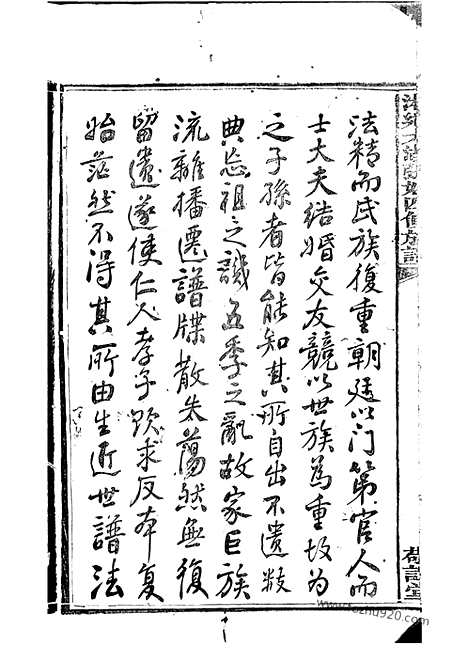 法精而氏族復重朝廷以门第官人而
士大夫结婚交友競以世族為重故为
之子孫者皆能知其所自出不遺数
典忘祖之譏五季之亂故家巨族
流離播遷譜牒散失蕩然無復
留遺遂使仁人孝子欲求反本復
始茫然不得其所由生近世譜法
fozhu920.com